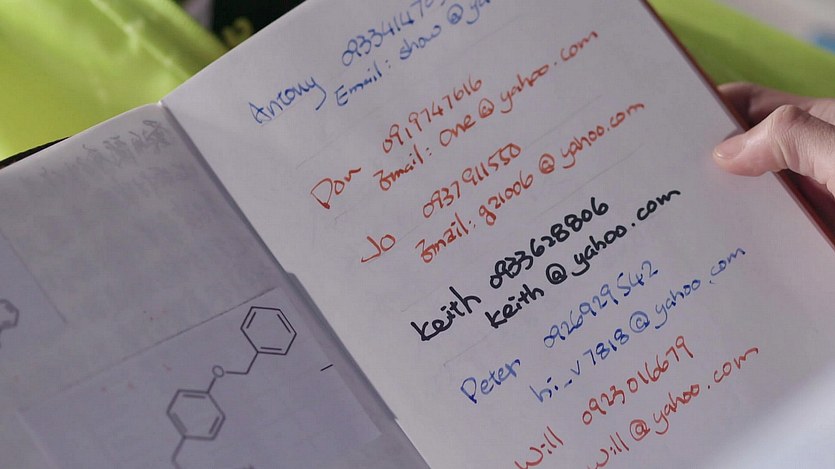 Antony 09334147
Email: show@ya
Don 0919747616
Email: one@yahoo.com
Jo 0937911550
Email: g21006@yahoo.com
Keith 0933628806
keith@yahoo.com
Peter 0926929542
hi_v7818@yahoo.com
Will 0923016679
Will@yahoo.com